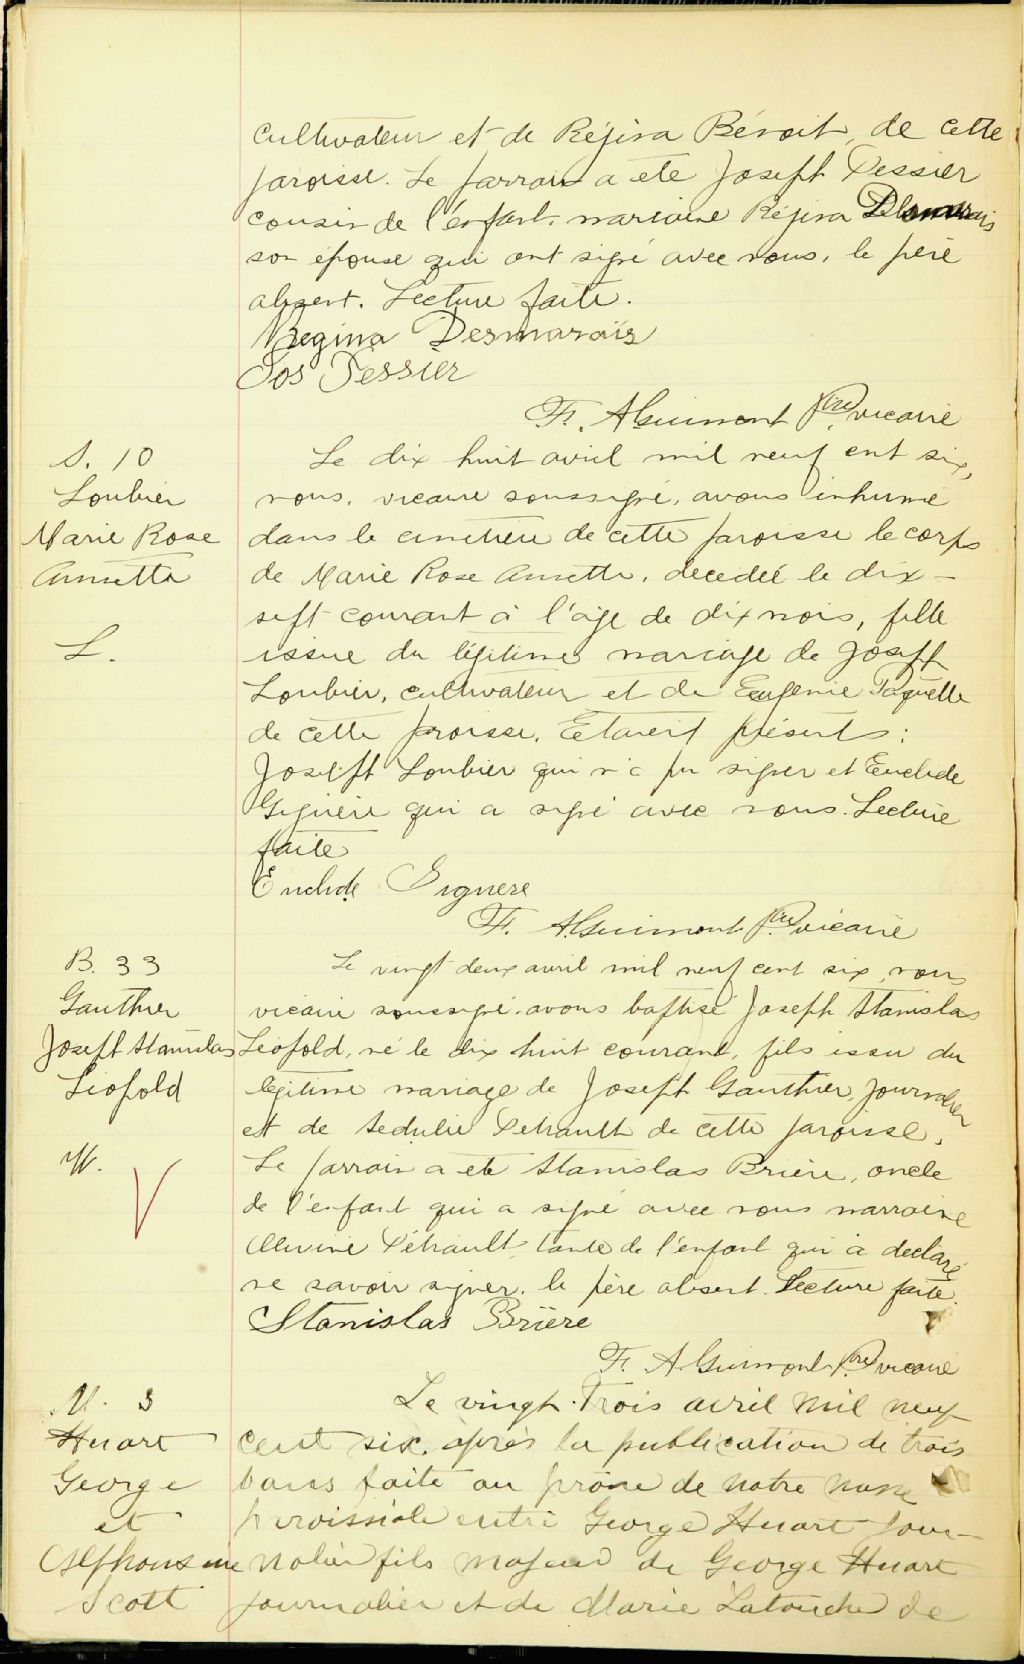 cultivateur et de Régina Benoit, de cette
paroisse. Le parrain a été Joseph Tessier
cousin de l'enfant, marraine Régina Desmarais
son épouse qui ont signé avec nous, le père
absent. Lecture faite.
Regina Desmarais
Jos Tessier
F. A. Guimont ptre vicaire
S. 10
Loubier
Marie Rose
Annette
L.
Le dix huit avril mil neuf cent six,
nous, vicaire soussigné, avons inhumé
dans le cimetière de cette paroisse le corps
de Marie Rose Annette, décédée le dix-
sept courant à l'âge de dix mois, fille
issue du légitime mariage de Joseph
Loubier, cultivateur et de Eugenie Paquette
de cette paroisse. Étaient présents:
Joseph Loubier qui n'a pu signer et Euclide
Gignère qui a signé avec nous. Lecture
faite
Euclide Gignere
F. A. Guimont ptre vicaire
B. 33
Gauthier
Joseph Stanislas
Léopold
W.
Le vingt deux avril mil neuf cent six, nous
vicaire soussigné avons baptisé Joseph Stanislas
Léopold, né le dix huit courant, fils issu du
légitime mariage de Joseph Gauthier, journalier
et de Sedulie Petrault de cette paroisse.
Le parrain a été Stanislas Brière, oncle
de l'enfant qui a signé avec nous marraine
Pétrault, tante de l'enfant qui a déclaré
ne savoir signer, le père absent. Lecture faite.
Stanislas Brière
F. A. Guimont ptre vicaire
M. 3
Huart
George
et
Alphonsine
Scott
Le vingt-Trois avril mil neuf
cent six, après la publication de trois
bans faite au prône de notre messe
paroissiale entre George Huart jour-
nalier fils majeur de George Huart
journalier et de Marie Latouche de